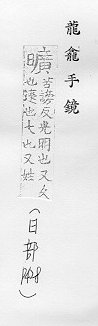 龍龕手鏡
曠苦謗反光明也又久
也遠也大也又姓
(日部